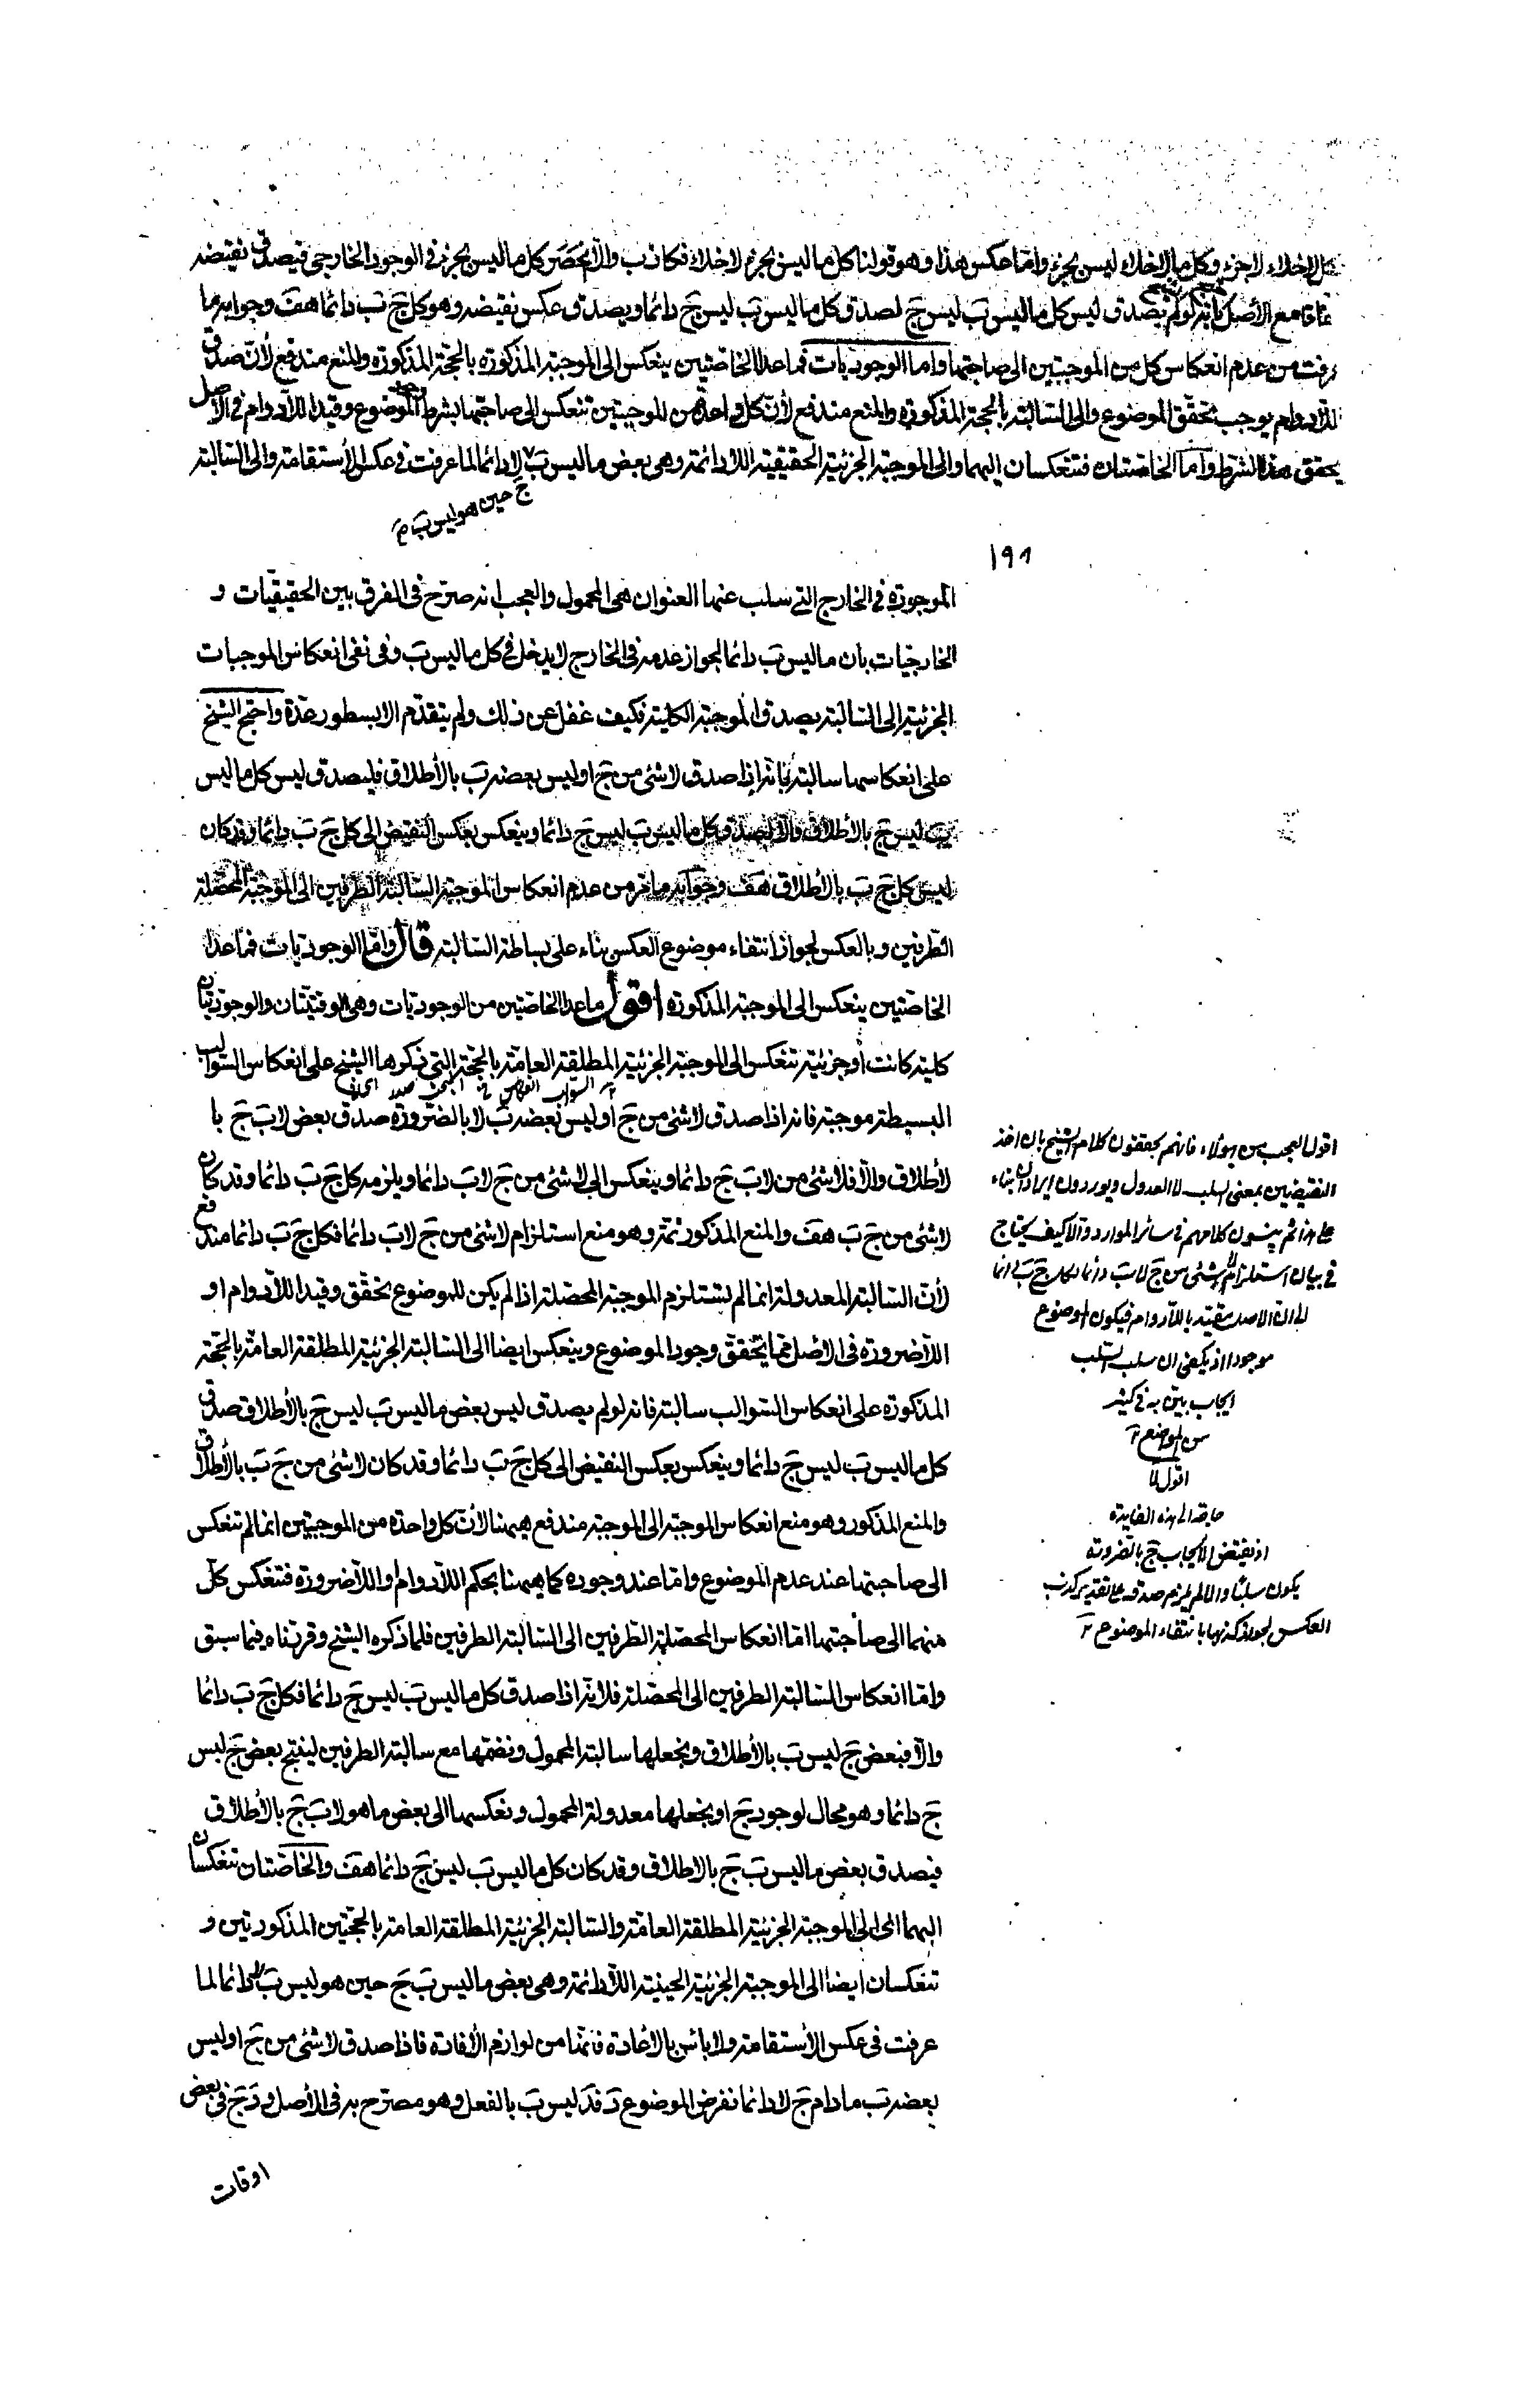 كل لاخلاء لاجزء وكل ما لاخلاء ليس بجزء واما عكس هذا وهو قولنا كل ما ليس بجزء لاخلاء فكاذب والا انحصر كل ما ليس بجزء في الوجود الخارجي فيصدق نقيضه
مع الأصل بانه لو لم يصدق ليس كل ما ليس ب ليس ج لصدق كل ما ليس ب ليس ج دائما ويصدق عكس نقيضه وهو كل ج ب دائما هف وجوابه ما
عرفت من عدم انعكاس كل من الموجبتين الى صاحبتها واما الوجوديات فما عدا الخاصتين ينعكس الى الموجبة المذكورة بالحجة المذكورة والمنع مندفع لأن صدق
اللادوام يوجب تحقق الموضوع والى السالبة بالحجة المذكورة والمنع مندفع لأن كل واحدة من الموجبتين تنعكس الى صاحبتها بشرط وجود الموضوع وقيد اللادوام في الأصل
يحقق هذا الشرط واما الخاصتان فتنعكسان اليهما والى الموجبة الجزئية الحقيقية اللادائمة وهي بعض ما ليس ب لا دائما لما عرفت في عكس الأستقامة والى السالبة
ج حين هو ليس ب م
١٩١
الموجودة في الخارج التي سلب عنها العنوان هي المحمول والعجب انه صرّح في الفرق بين الحقيقيات و
الخارجيات بان ما ليس ب دائما لجواز عدمه في الخارج لا يدخل في كل ما ليس ب وفي نفى انعكاس الموجبات
الجزئية الى السالبة بصدق الموجبة الكلية فكيف غفل عن ذلك ولم يتقدم الا بسطور عدة واحتج الشيخ
على انعكاسها سالبة بانه اذا صدق لا شئ من ج او ليس بعضه ب بالأطلاق فليصدق ليس كل ما ليس
ب ليس ج بالأطلاق والا لصدق كل ما ليس ب ليس ج دائما وينعكس بعكس النقيض الى كل ج ب دائما وقد كان
ليس كل ج ب بالأطلاق هف وجوابه ما مر من عدم انعكاس الموجبة السالبة الطرفين الى الموجبة المحصلة
الطرفين وبالعكس لجواز انتفاء موضوع العكس بناء على بساطة السالبة قال واما الوجوديات فما عدا
الخاصتين ينعكس الى الموجبة المذكورة اقول ما عدا الخاصتين من الوجوديات وهي الوقتيتان والوجوديتان
كلية كانت أو جزئية تنعكس الى الموجبة الجزئية المطلقة العامة بالحجة التي ذكرها الشيخ على انعكاس السوالب
البسيطة موجبة فانه اذا صدق لا شئ من ج أو ليس بعضه ب لا بالضرورة صدق بعض لا ب ج با
لأطلاق والا فلا شئ من لا ب ج دائما وينعكس الى لا شئ من ج لا ب دائما ويلزمه كل ج ب دائما وقد كان
لا شئ من ج ب هف والمنع المذكور ثمة وهو منع استلزام لا شئ من ج لا ب دائما فكل ج ب دائما مندفع
لأن السالبة المعدولة انما لم تستلزم الموجبة المحصلة اذا لم يكن للموضوع تحقق وقيد اللادوام او
اللاضرورة في الأصل مما يحقق وجود الموضوع وينعكس ايضا الى السالبة الجزئية المطلقة العامة بالحجة
المذكورة على انعكاس السوالب سالبة فانه لو لم يصدق ليس بعض ما ليس ب ليس ج بالأطلاق صدق
كل ما ليس ب ليس ج دائما وينعكس بعكس النقيض الى كل ج ب دائما وقد كان لا شئ من ج ب بالأطلاق
والمنع المذكور وهو منع انعكاس الموجبة الى الموجبة مندفع هيهنا لأن كل واحدة من الموجبتين انما لم تنعكس
الى صاحبتها عند عدم الموضوع واما عند وجوده كما هيهنا بحكم اللادوام أو اللاضرورة فتنعكس كل
منهما الى صاحبتها اما انعكاس المحصلة الطرفين الى السالبة الطرفين فلما ذكره الشيخ وقررناه فيما سبق
واما انعكاس السالبة الطرفين الى المحصلة فلانه اذا صدق كل ما ليس ب ليس ج دائما فكل ج ب دائما
والا فبعض ج ليس ب بالأطلاق ونجعلها سالبة المحمول ونضمها مع سالبة الطرفين لينتج بعض ج ليس
ج دائما وهو محال لوجود ج او نجعلها معدولة المحمول ونعكسها الى بعض ما هو لا ب ج بالأطلاق
فيصدق بعض ما ليس ب ج بالاطلاق وقد كان كل ما ليس ب ليس ج دائما هف والخاصتان تنعكسان
اليهما اى الى الموجبة الجزئية المطلقة العامة والسالبة الجزئية المطلقة العامة بالحجتين المذكورتين و
تنعكسان ايضا الى الموجبة الجزئية الحينية اللادائمة وهي بعض ما ليس ب ج حين هو ليس ب لا دائما لما
عرفت في عكس الأستقامة ولا باس بالأعادة فانها من لوازم الأفادة فاذا صدق لا شئ من ج او ليس
بعضه ب ما دام ج لا دائما نفرض الموضوع د فد ليس ب بالفعل وهو مصرح به في الأصل ود ج في بعض
اوقات
اقول العجب من هؤلاء فانهم يحققون كلام الشيخ بان اخذ
النقيضين بمعنى السلب لا العدول ويوردون ايرادات بناء
على هذا ثم ينسون كلامهم في سائر الموارد والا كيف يحتاج
في بيان استلزام لا شئ من ج لا ب دائما لكل ج ب دائما
الى ان الاصل مقيد باللادوام فيكون الموضوع
موجودا اذ يكفي ان سلب السلب
ايجاب بينه في كثير
من المواضع
اقول لا
حاجة الى هذه الفايدة
اذ نقيض الايجاب ج بالضرورة
يكون سلبا والا لم يلزم صدقه على تقدير كذب
العكس لجواز كذبهما بانتفاء الموضوع